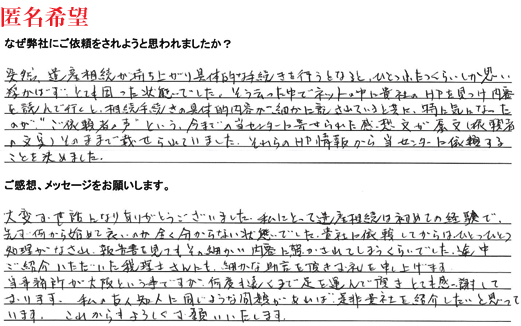 匿名希望
なぜ弊社にご依頼をされようと思われましたか？
突然、遺産相続が持ち上がり具体的な手続きを行うとなると、ひとつふたつくらいしか思い
浮かばず、とても困った状態でした。そうした中でネットの中に貴社のHPを見つけ内容
を読んで行くと、相続手続きの具体的内容が細かに記されていると共に、特に気になった
のが"ご依頼者の声"という、今まで当センターに寄せられた感想文が原文(依頼者
の文字)そのままで載せられていました。それらのHP情報から当センターに依頼する
ことを決めました。
ご感想、メッセージをお願いします。
大変お世話になりありがとうございました。私にとって遺産相続は初めての経験で、
先ず何から始めて良いのか全く分からない状態でした。貴社に依頼してからは、ひとつひとつ
処理がなされ、報告書を見てもその細かい内容に驚かされてしまうくらいでした。途中
ご紹介いただいた税理士さんにも、細かな助言を頂きお礼を申し上げます。
当事務所が大阪という事ですが、何度も遠くまで足を運んで頂きとても感謝して
おります。私の友人知人に同じような問題があれば、是非貴社を紹介したいと思って
います。これからもよろしくお願いいたします。